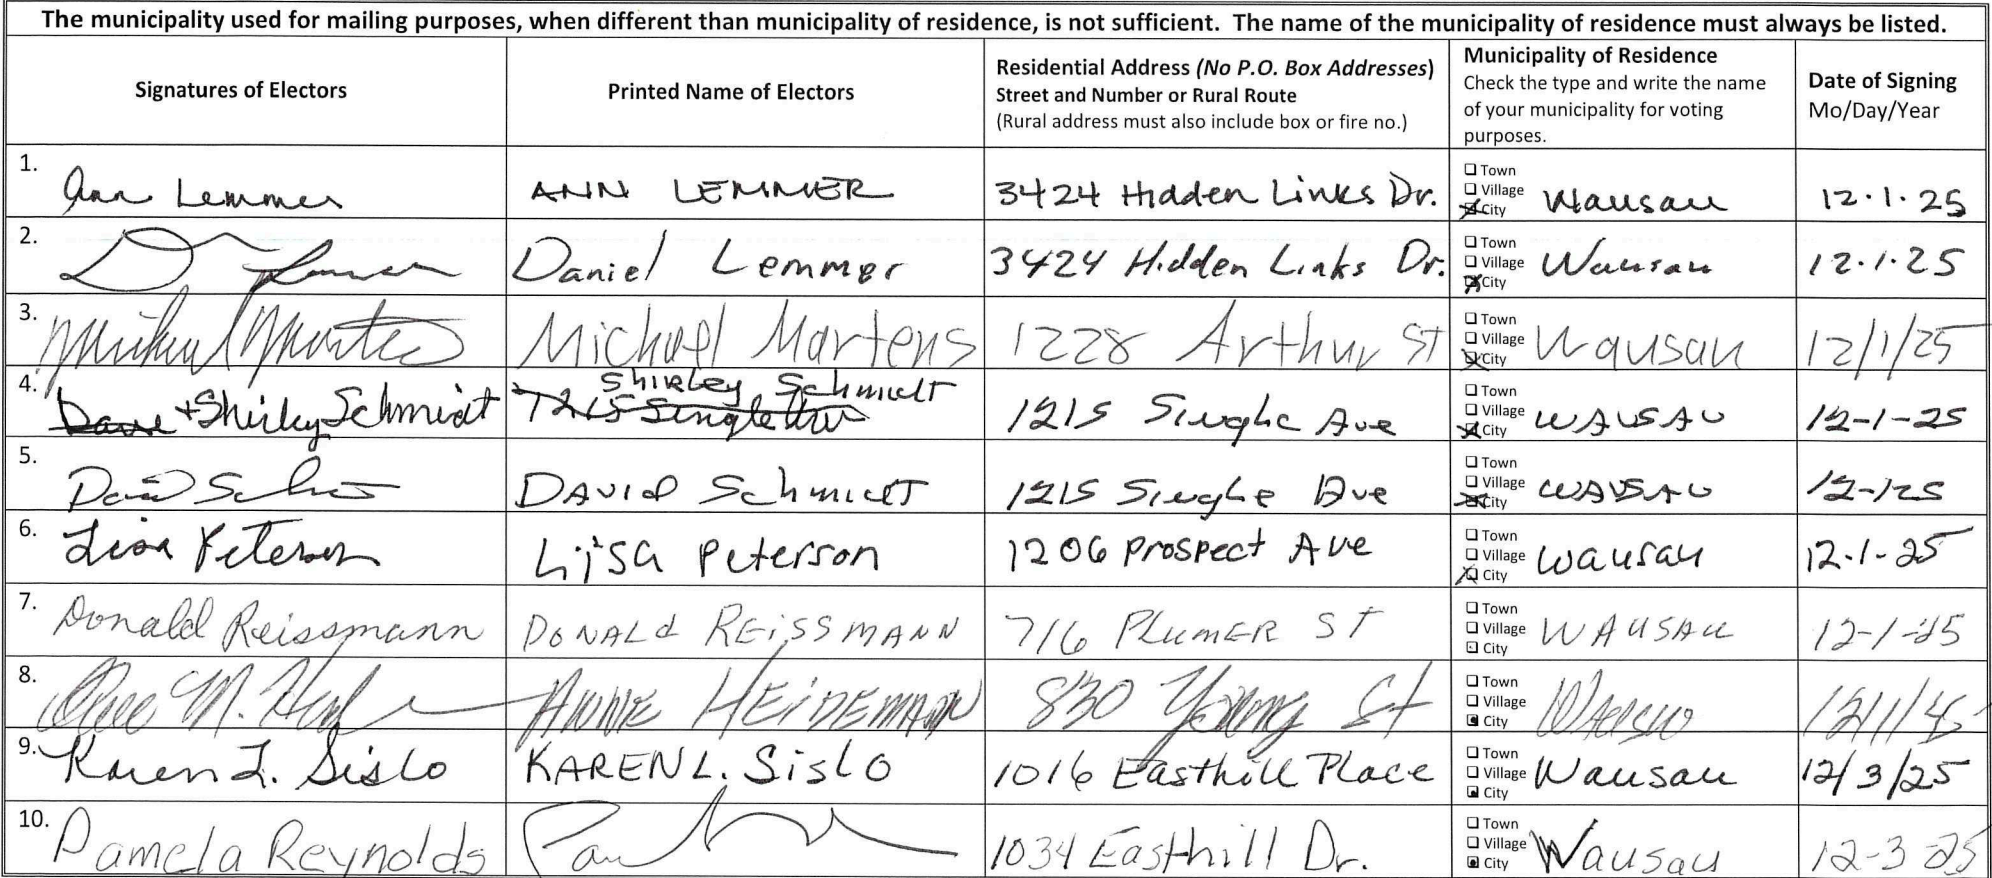 The municipality used for mailing purposes, when different than municipality of residence, is not sufficient. The name of the municipality of residence must always be listed.
Signatures of Electors
Printed Name of Electors
Residential Address (No P.O. Box Addresses)
Street and Number or Rural Route
(Rural address must also include box or fire no.)
Municipality of Residence
Check the type and write the name
of your municipality for voting
purposes.
Date of Signing
Mo/Day/Year
1. Ann Lemmer ANN LEMMER 3424 Hidden Links Dr. Town
Village Wausau 12.1.25
City
2. D Lemmer Daniel Lemmer 3424 Hidden Links Dr. Town
Village Wausau 12.1.25
City
3. Michael Martens Michael Martens 1228 Arthur St Town
Village Wausau 12/1/25
City
Shirley Schmidt
4. Dave + Shirley Schmidt 1215 Single Ave 1215 Singhe Ave Town
Village WAUSAU 12-1-25
City
5. David DAVID Schmidt 1215 Singhe Ave Town
Village WAUSAU 12-125
City
6. Lisa Peterson Lisa Peterson 1206 Prospect Ave Town
Village Wausau 12-1-25
City
7. Donald Reissmann DONALd REiSSMANN 716 PLUMER ST Town
Village WAUSAU 12-1-25
City
8. M. ANNE HEiNEMANN 830 Young St Town
Village Wausau
City
9. Karen L. Sislo KAREN L. SisLO 1016 Easthill Place Town
Village Wausau 12/3/25
City
10. Pamela Reynolds 1034 Easthill Dr. Town
Village Wausau 12-3-25
City